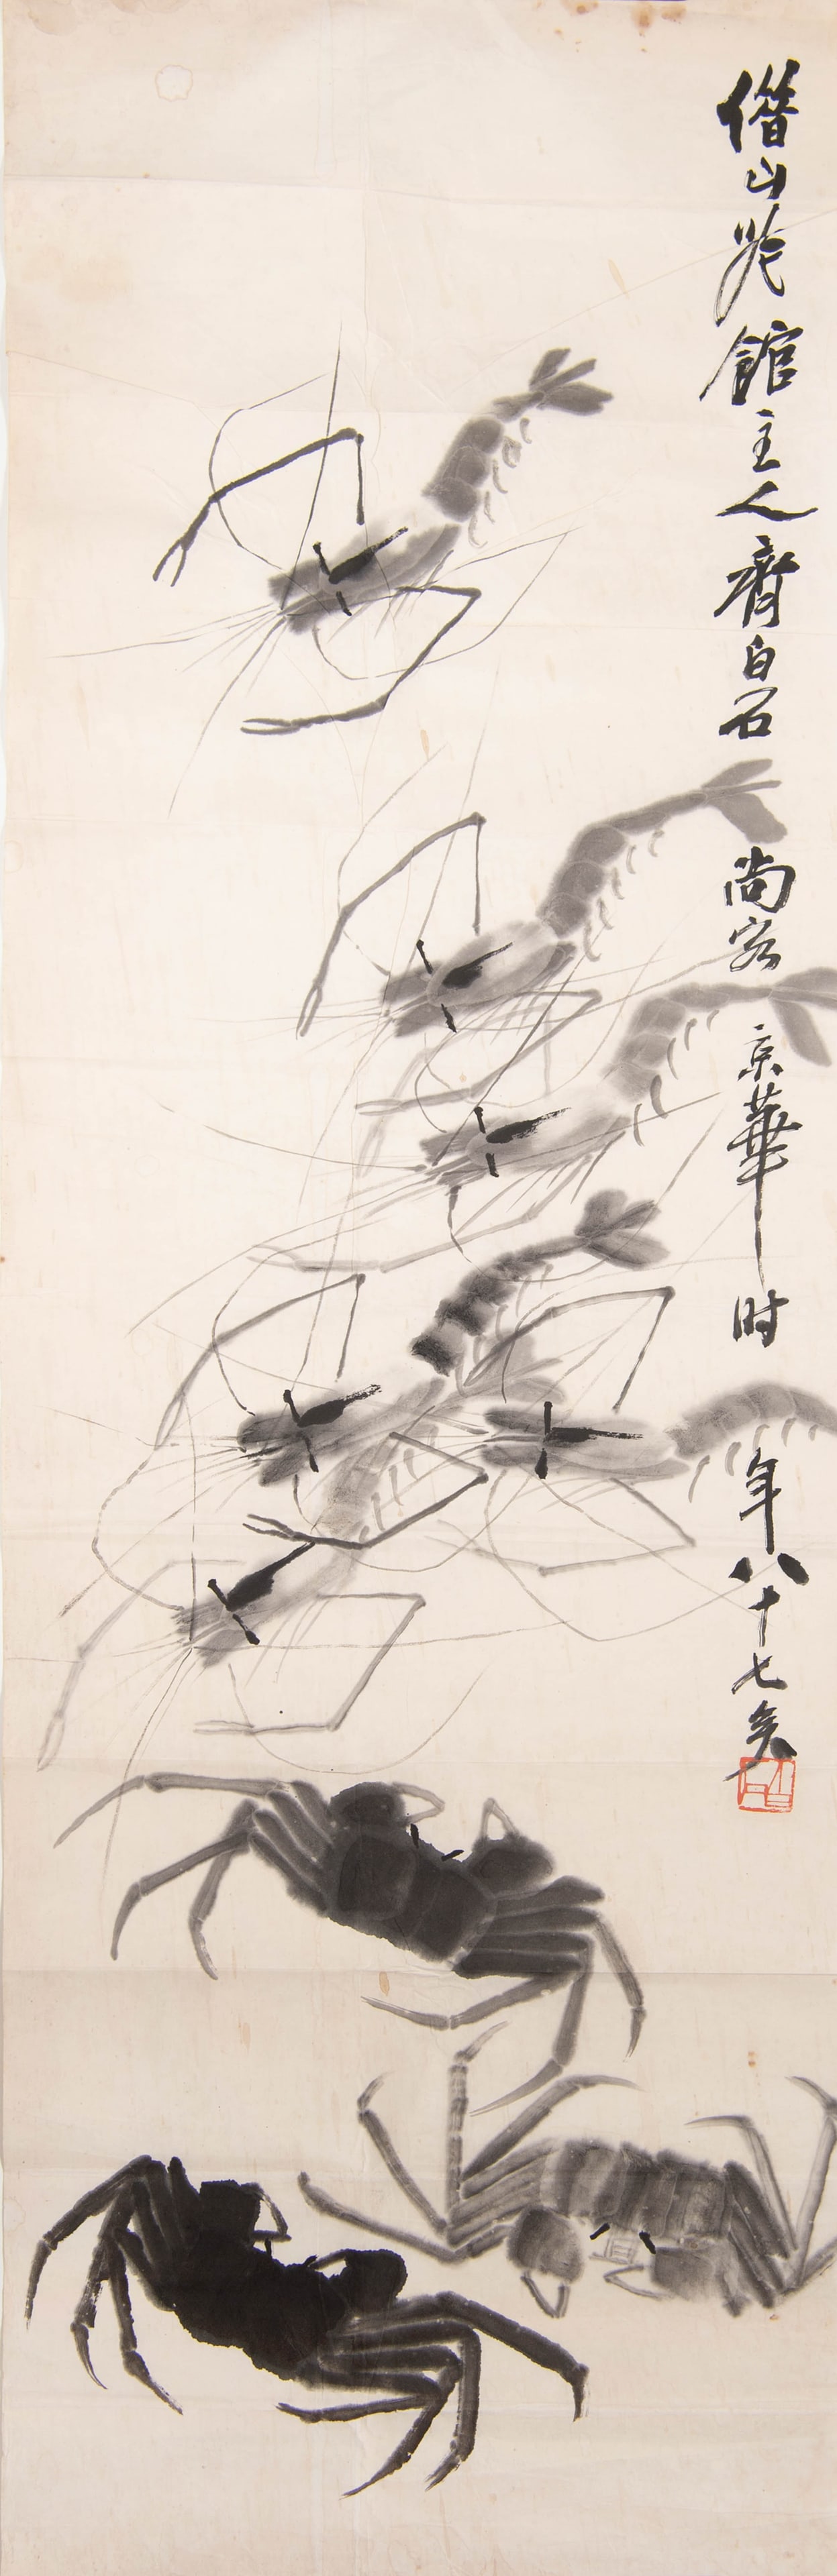 借山吟館主人齊白石尚客京華时年八十七矣